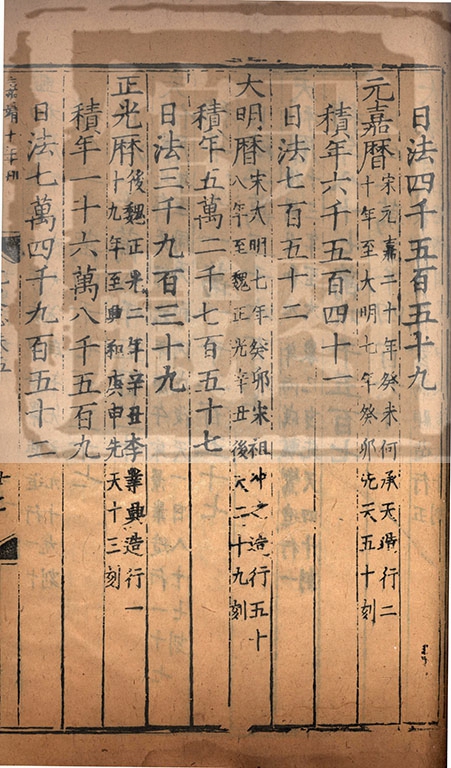 日法四千五百五十九
元嘉曆宋元嘉二十年癸未何承天造行二
十年至大明七年癸卯先天五十刻
積年六千五百四十一
日法七百五十二
大明曆宋大明七年癸卯宋祖冲之造行五十
八年至魏正光辛丑後天二十九刻
積年五萬二千七百五十七
日法三千九百三十九
正光曆後魏正光二年辛丑李業興造行一
十九年至興和庚申先天十三刻
積年一十六萬八千五百九
日法七萬四千九百五十二
嘉靖十年刊